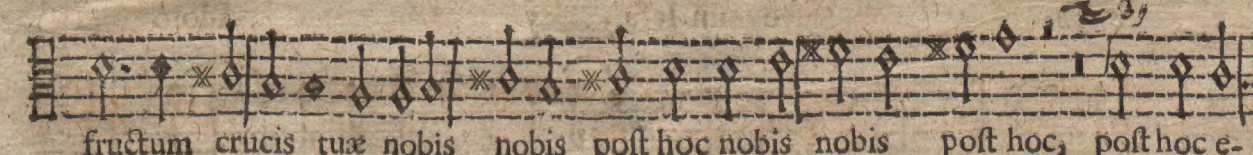 39
fructum crucis tuæ nobis nobis poſt hoc nobis nobis poſt hoc, poſt hoc e-